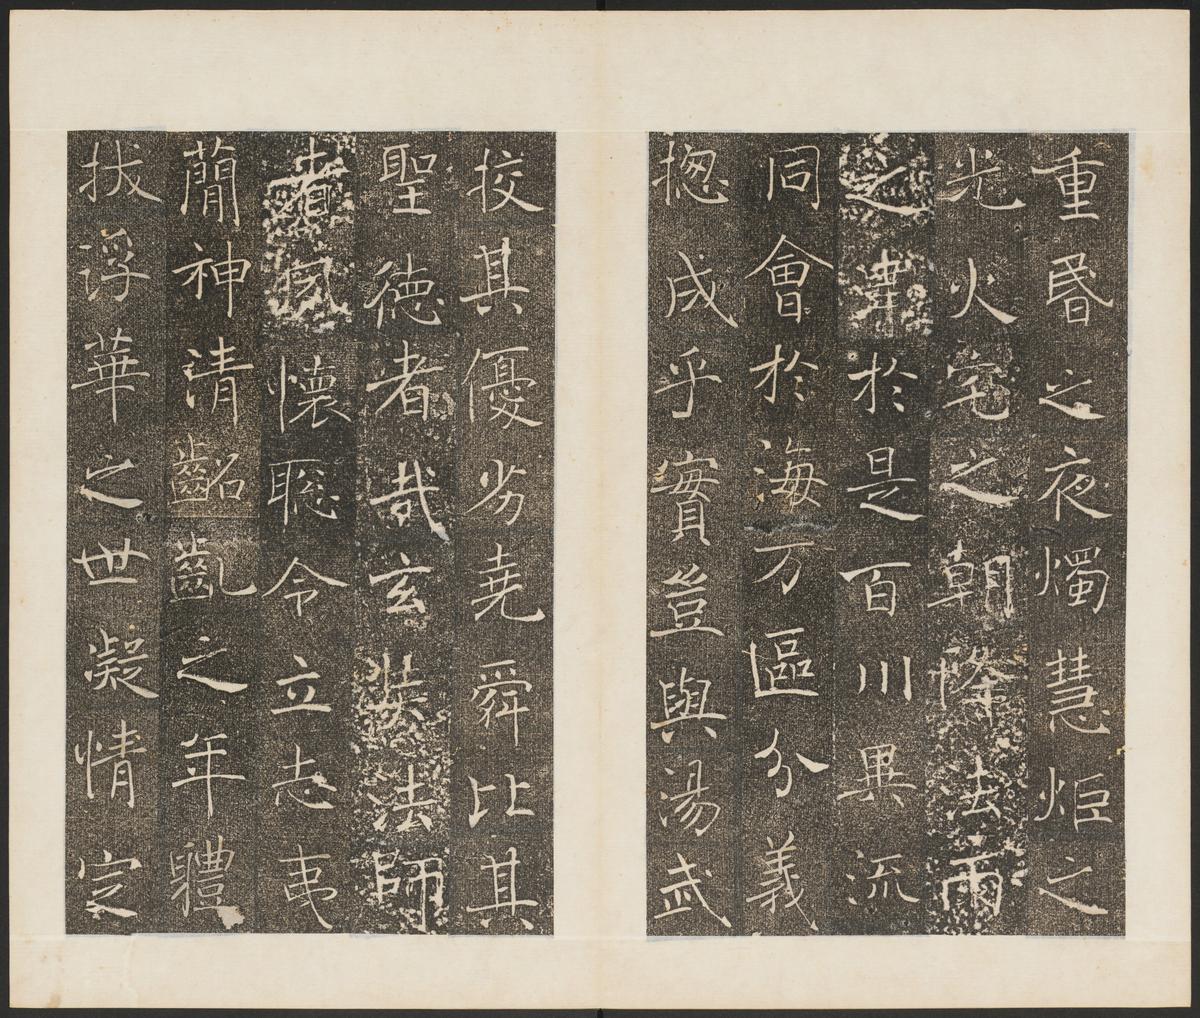 重昬之夜燭慧炬之
光火宅之朝降法雨
之澤於是百川異流
同會於海万區分義
揔成乎實豈與湯武
挍其優劣堯舜比其
聖德者哉玄奘法師
者夙懷聡令立志夷
蕳神清齠齓之年體
拔浮華之世凝情定